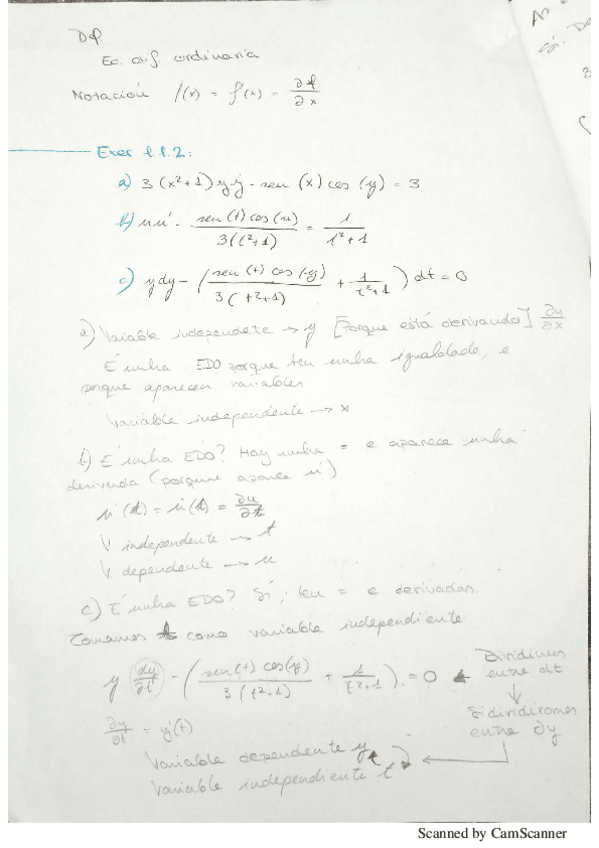 Def
Ec. dif. ordinaria
Notación f'(x) = ḟ(x) = ∂f/∂x
Exer 1.1.2:
a) 3(x²+1)yẏ - sen(x)cos(y) = 3
b) uu' - sen(t)cos(u)/3(t²+1) = 1/t²+1
c) ydy - (sen(t) cos(y)/3(t²+1) + 1/t²+1) dt = 0
a) Variable independete → y [Porque está derivando] ∂y/∂x
É unha EDO porque ten unha igualdade, e
porque aparecen variables
Variable independente → x
b) É unha EDO? Hay unha = e aparece unha
derivada (porque aparece u')
u'(t) = u̇(t) = ∂u/∂t
V. independente → t
V. dependente → u
c) É unha EDO? Sí, ten = e derivadas.
Tomamos t como variable independiente
y dy/dt - (sen(t) cos(y)/3(t²+1) + 1/t²+1) = 0 ← Dividimos
entre dt
↓
Si dividiramos
entre ∂y
∂y/∂t = y'(t)
Variable dependente y t
Variable independiente t
Scanned by CamScanner